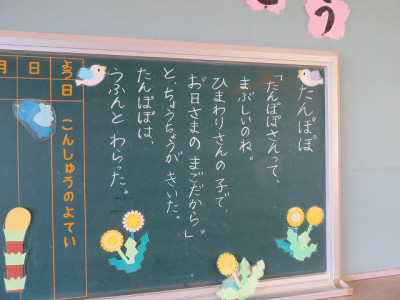 こう
たんぽぽ
「たんぽぽさんって、
まぶしいのね。
ひまわりさんの 子で、
お日さまの まごだから。」
と、ちょうちょうが きいた。
たんぽぽは、
うふんと わらった。
こんしゅうのよてい
よう日
日
月